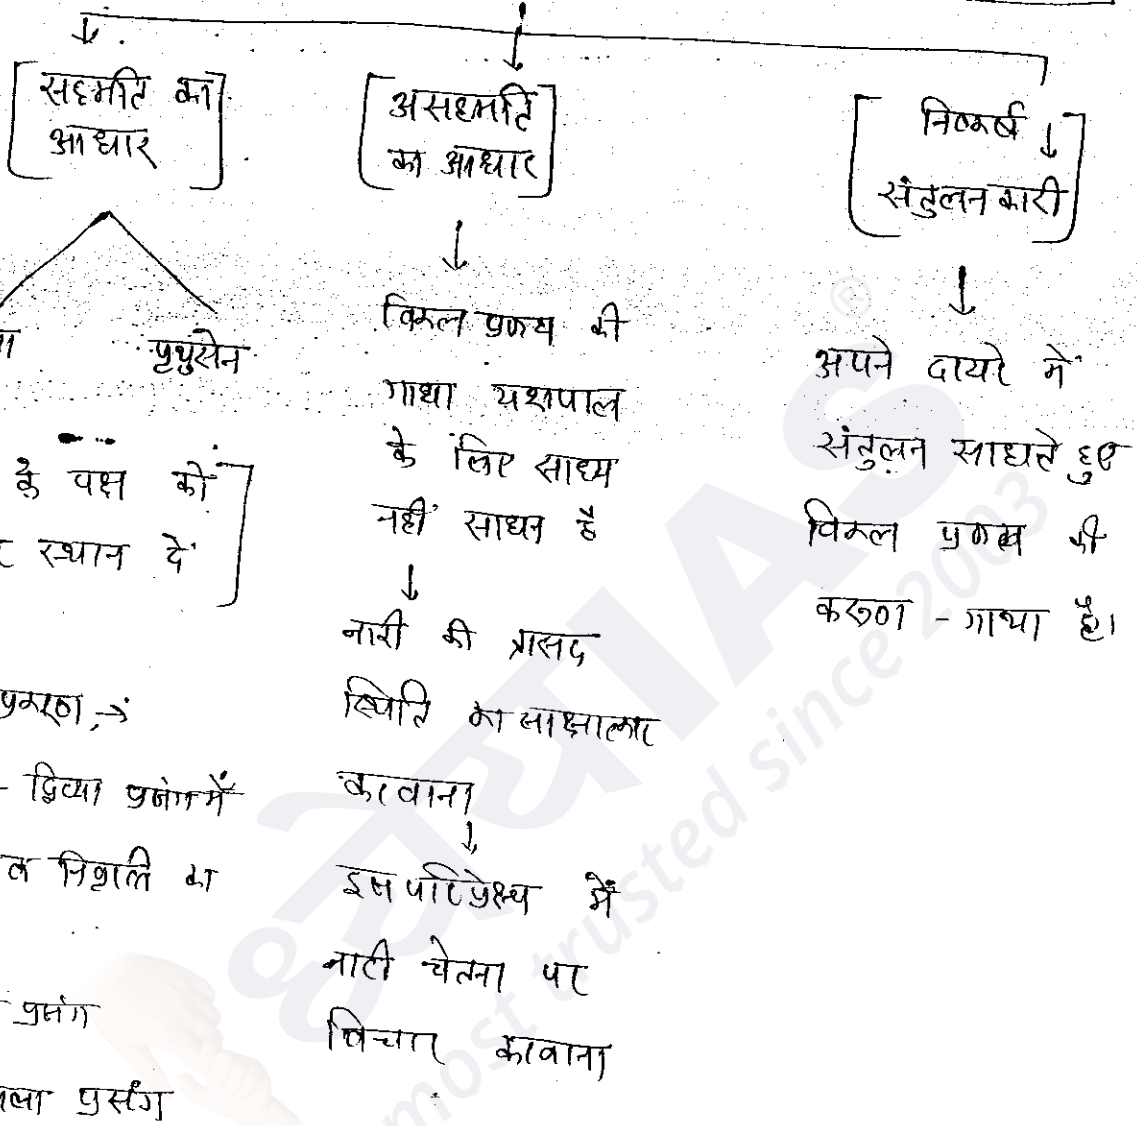 सहमति का
आधार
पृथुसेन
के पक्ष को
स्थान दें
प्रकरण →
- दिव्या प्रसंग में
का
- प्रसंग
प्रसंग
असहमति
का आधार
विफल प्रणय की
गाथा यशपाल
के लिए साध्य
नहीं साधन है
नारी की त्रासद
स्थिति का साक्षात्कार
करवाना
इस परिप्रेक्ष्य में
नारी चेतना पर
विचार करवाना
निष्कर्ष
संतुलनकारी
अपने दायरे में
संतुलन साधते हुए
विफल प्रणय की
करुणा - गाथा है।
ध्येय IAS
®
most trusted since 2003